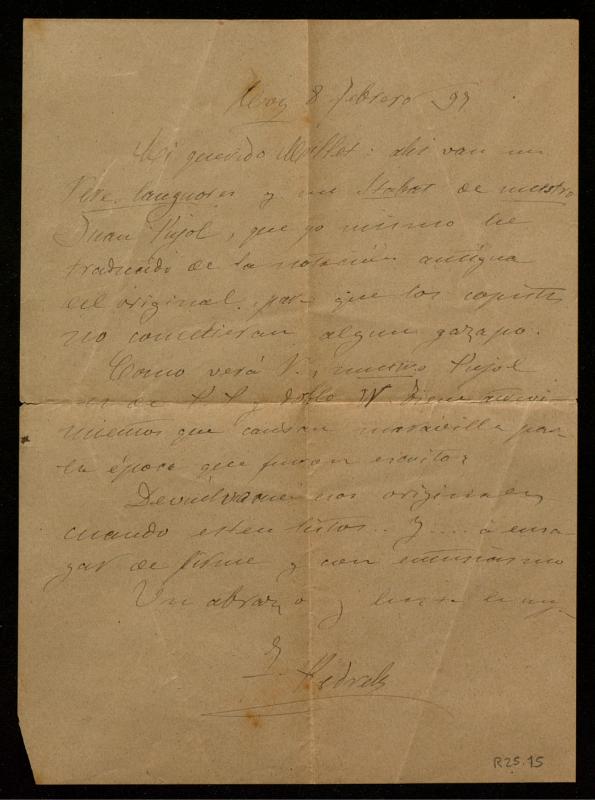 Hoy 8 Febrero 97
Mi querido Millet: ahi van un
Vere languores y un Stabat de nuestro
Juan Pujol, que yo mismo he
traducido de la notación antigua
del original, para que los copistas
no cometieran algun gazapo.
Como verá V., nuestro Pujol
es de P P y doble W. Tiene atrevi
mientos que causan maravilla para
la época que fueron escritos
Devuélvame los originales
cuando esten listos.. Y .... á ensa
yar de firme y con entusiasmo
Un abrazo y
F. Pedrell
R25.15